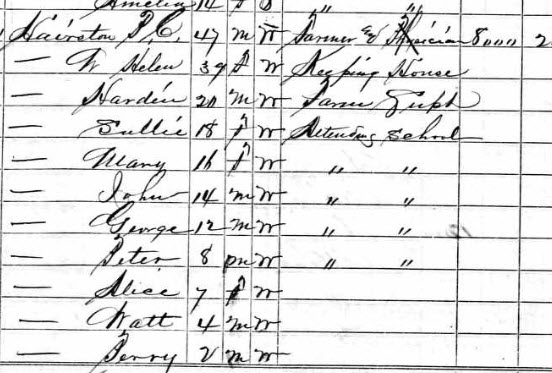 Amelia 14 f B " "
Hairston P C, 47 m W Farmer & Phisician 8000 2
— W Helen 39 f W Keeping House
— Hardin 20 m W Farm
— Sullie 18 f W Attending School
— Mary 16 f W " "
— John 14 m W " "
— George 12 m W " "
— Peter 8 m W " "
— Alice 7 f W
— Watt 4 m W
— Perry 2 m W